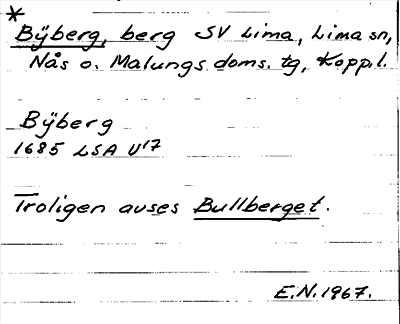 *
Bÿberg, berg SV Lima, Lima sn,
Nås o. Malungs doms. tg, Koppl.
Bÿberg
1685 LSA U17
Troligen avses Bullberget.
E.N. 1967.